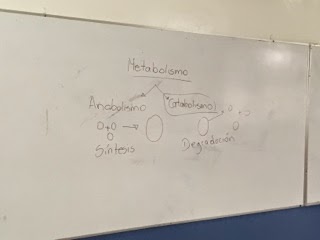 Metabolismo
Anabolismo
Catabolismo
Síntesis
Degradación